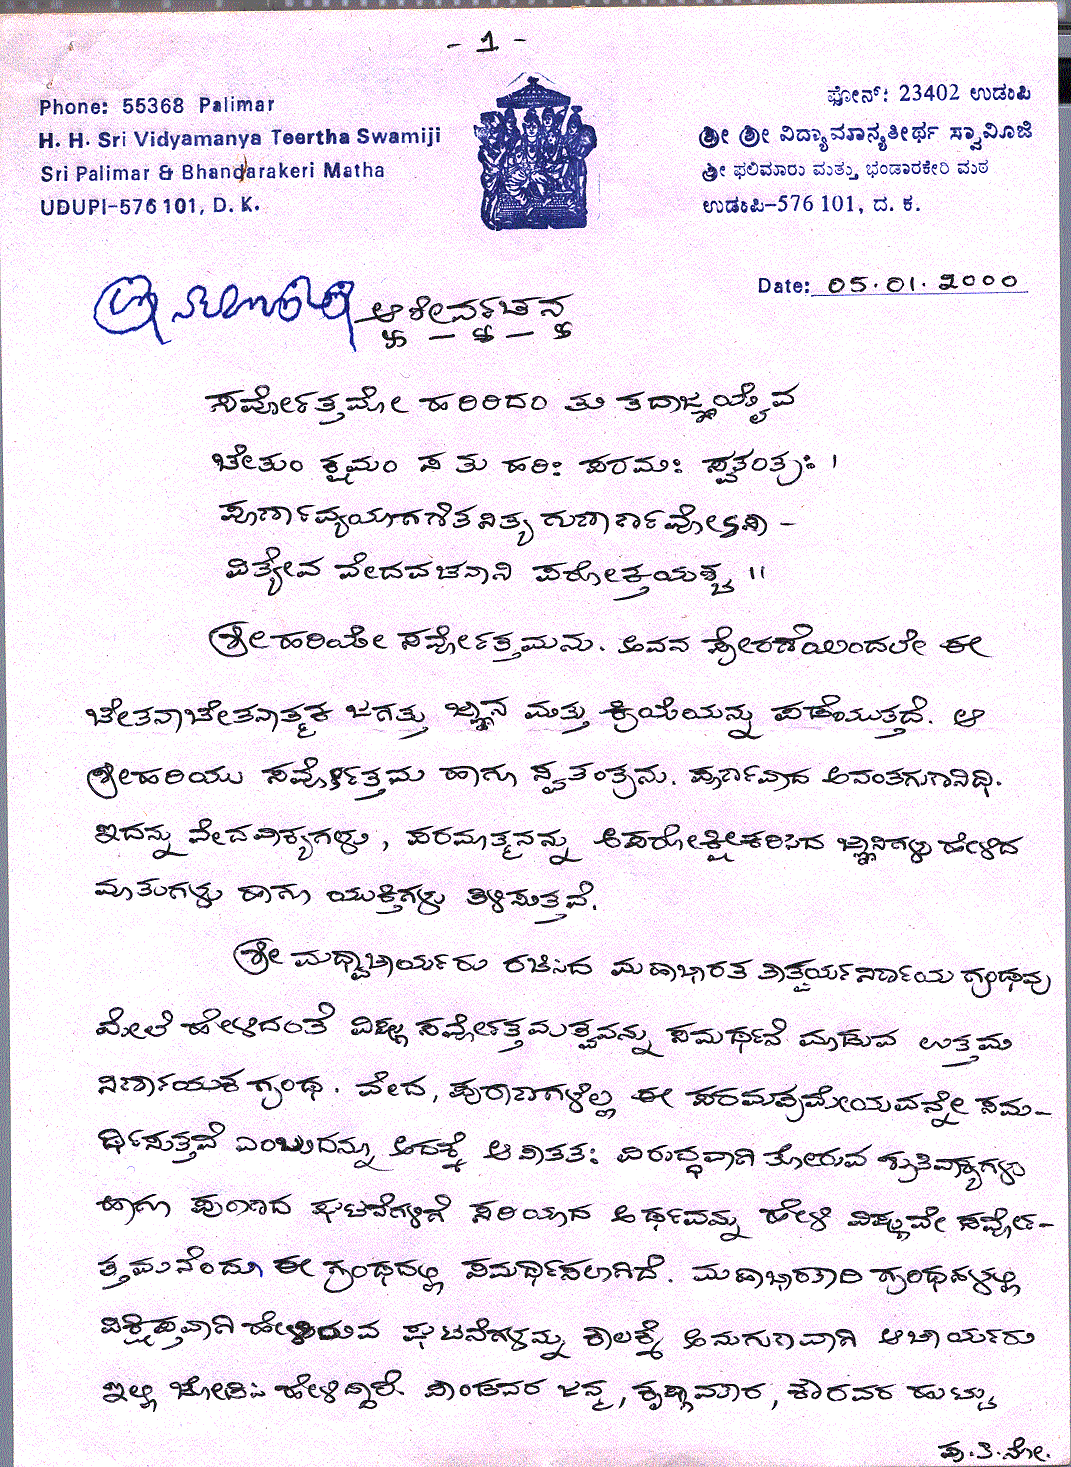 - 1 -
Phone: 55368 Palimar
H. H. Sri Vidyamanya Teertha Swamiji
Sri Palimar & Bhandarakeri Matha
UDUPI-576 101, D. K.
ಫೋನ್: 23402 ಉಡುಪಿ
ಶ್ರೀ ಶ್ರೀ ವಿದ್ಯಾಮಾನ್ಯತೀರ್ಥ ಸ್ವಾಮೀಜಿ
ಶ್ರೀ ಫಲಿಮಾರು ಮತ್ತು ಭಂಡಾರಕೇರಿ ಮಠ
ಉಡುಪಿ-576 101, ದ. ಕ.
Date: 05.01.2000
ಆಶೀರ್ವಚನ
ಸರ್ವೋತ್ತಮೋ ಹರಿರಿದಂ ತು ತದಾಜ್ಞಯೈವ
ಚೇತುಂ ಕ್ಷಮಂ ಸ ತು ಹರಿಃ ಪರಮಃ ಸ್ವತಂತ್ರಃ ।
ಪೂರ್ಣಾವ್ಯಯಾಗಣಿತನಿತ್ಯಗುಣಾರ್ಣವೋಽಸೌ -
ವಿತ್ಯೇವ ವೇದವಚನಾನಿ ಪರೋಕ್ತಯಶ್ಚ ॥
ಶ್ರೀಹರಿಯೇ ಸರ್ವೋತ್ತಮನು. ಅವನ ಪ್ರೇರಣೆಯಿಂದಲೇ ಈ
ಚೇತನಾಚೇತನಾತ್ಮಕ ಜಗತ್ತು ಜ್ಞಾನ ಮತ್ತು ಕ್ರಿಯೆಯನ್ನು ಪಡೆಯುತ್ತದೆ. ಆ
ಶ್ರೀಹರಿಯು ಸರ್ವೋತ್ತಮ ಹಾಗೂ ಸ್ವತಂತ್ರನು. ಪೂರ್ಣವಾದ ಅನಂತಗುಣನಿಧಿ.
ಇದನ್ನು ವೇದವಾಕ್ಯಗಳು, ಪರಮಾತ್ಮನನ್ನು ಅಪರೋಕ್ಷೀಕರಿಸಿದ ಜ್ಞಾನಿಗಳು ಹೇಳಿದ
ಮಾತುಗಳು ಹಾಗೂ ಯುಕ್ತಿಗಳು ತಿಳಿಸುತ್ತವೆ.
ಶ್ರೀ ಮಧ್ವಾಚಾರ್ಯರು ರಚಿಸಿದ ಮಹಾಭಾರತ ತಾತ್ಪರ್ಯನಿರ್ಣಯ ಗ್ರಂಥವು
ಮೇಲೆ ಹೇಳಿದಂತೆ ವಿಷ್ಣು ಸರ್ವೋತ್ತಮತ್ವವನ್ನು ಸಮರ್ಥನೆ ಮಾಡುವ ಉತ್ತಮ
ನಿರ್ಣಾಯಕ ಗ್ರಂಥ. ವೇದ, ಪುರಾಣಗಳೆಲ್ಲ ಈ ಪರಮಪ್ರಮೇಯವನ್ನೇ ಸಮ-
ರ್ಥಿಸುತ್ತವೆ ಎಂಬುದನ್ನು ಅದಕ್ಕೆ ಆಪಾತತಃ ವಿರುದ್ಧವಾಗಿ ತೋರುವ ಶ್ರುತಿವಾಕ್ಯಗಳು
ಹಾಗೂ ಪುರಾಣದ ಘಟನೆಗಳಿಗೆ ಸರಿಯಾದ ಅರ್ಥವನ್ನು ಹೇಳಿ ವಿಷ್ಣುವೇ ಸರ್ವೋ-
ತ್ತಮನೆಂದೂ ಈ ಗ್ರಂಥದಲ್ಲಿ ಸಮರ್ಥಿಸಲಾಗಿದೆ. ಮಹಾಭಾರತಾದಿ ಗ್ರಂಥಗಳಲ್ಲಿ
ವಿಕ್ಷಿಪ್ತವಾಗಿ ಹೇಳಿರುವ ಘಟನೆಗಳನ್ನು ಕಾಲಕ್ಕೆ ಅನುಗುಣವಾಗಿ ಆಚಾರ್ಯರು
ಇಲ್ಲಿ ಜೋಡಿಸಿ ಹೇಳಿದ್ದಾರೆ. ಪಾಂಡವರ ಜನ್ಮ, ಕೃಷ್ಣಾವತಾರ, ಕೌರವರ ಹುಟ್ಟು
ಪು.ತಿ.ನೋ.